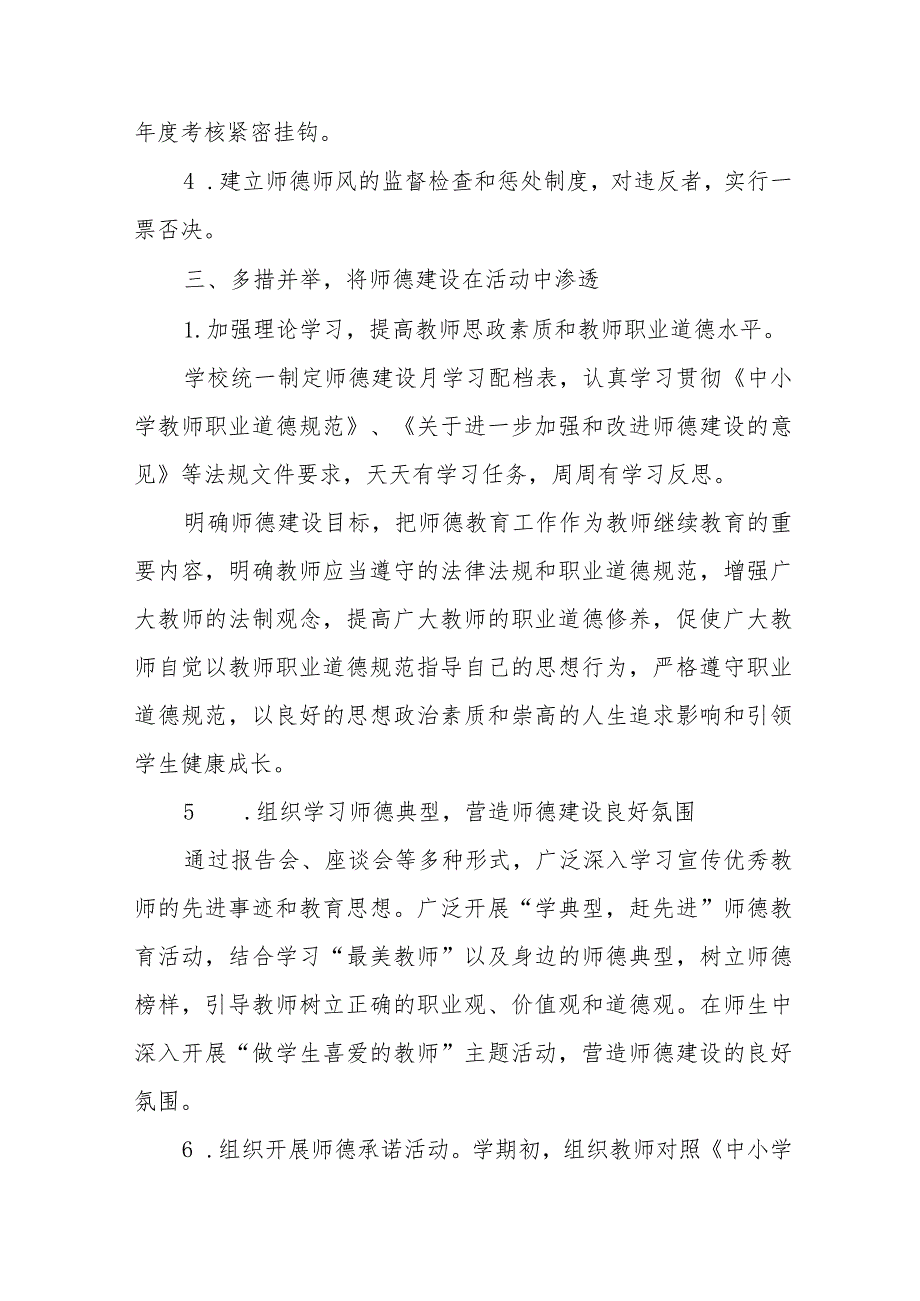 年度考核紧密挂钩。
4 .建立师德师风的监督检查和惩处制度，对违反者，实行一
票否决。
三、多措并举，将师德建设在活动中渗透
1.加强理论学习，提高教师思政素质和教师职业道德水平。
学校统一制定师德建设月学习配档表，认真学习贯彻《中小
学教师职业道德规范》、《关于进一步加强和改进师德建设的意
见》等法规文件要求，天天有学习任务，周周有学习反思。
明确师德建设目标，把师德教育工作作为教师继续教育的重
要内容，明确教师应当遵守的法律法规和职业道德规范，增强广
大教师的法制观念，提高广大教师的职业道德修养，促使广大教
师自觉以教师职业道德规范指导自己的思想行为，严格遵守职业
道德规范，以良好的思想政治素质和崇高的人生追求影响和引领
学生健康成长。
5 .组织学习师德典型，营造师德建设良好氛围
通过报告会、座谈会等多种形式，广泛深入学习宣传优秀教
师的先进事迹和教育思想。广泛开展“学典型，赶先进”师德教
育活动，结合学习“最美教师”以及身边的师德典型，树立师德
榜样，引导教师树立正确的职业观、价值观和道德观。在师生中
深入开展“做学生喜爱的教师”主题活动，营造师德建设的良好
氛围。
6 .组织开展师德承诺活动。学期初，组织教师对照《中小学